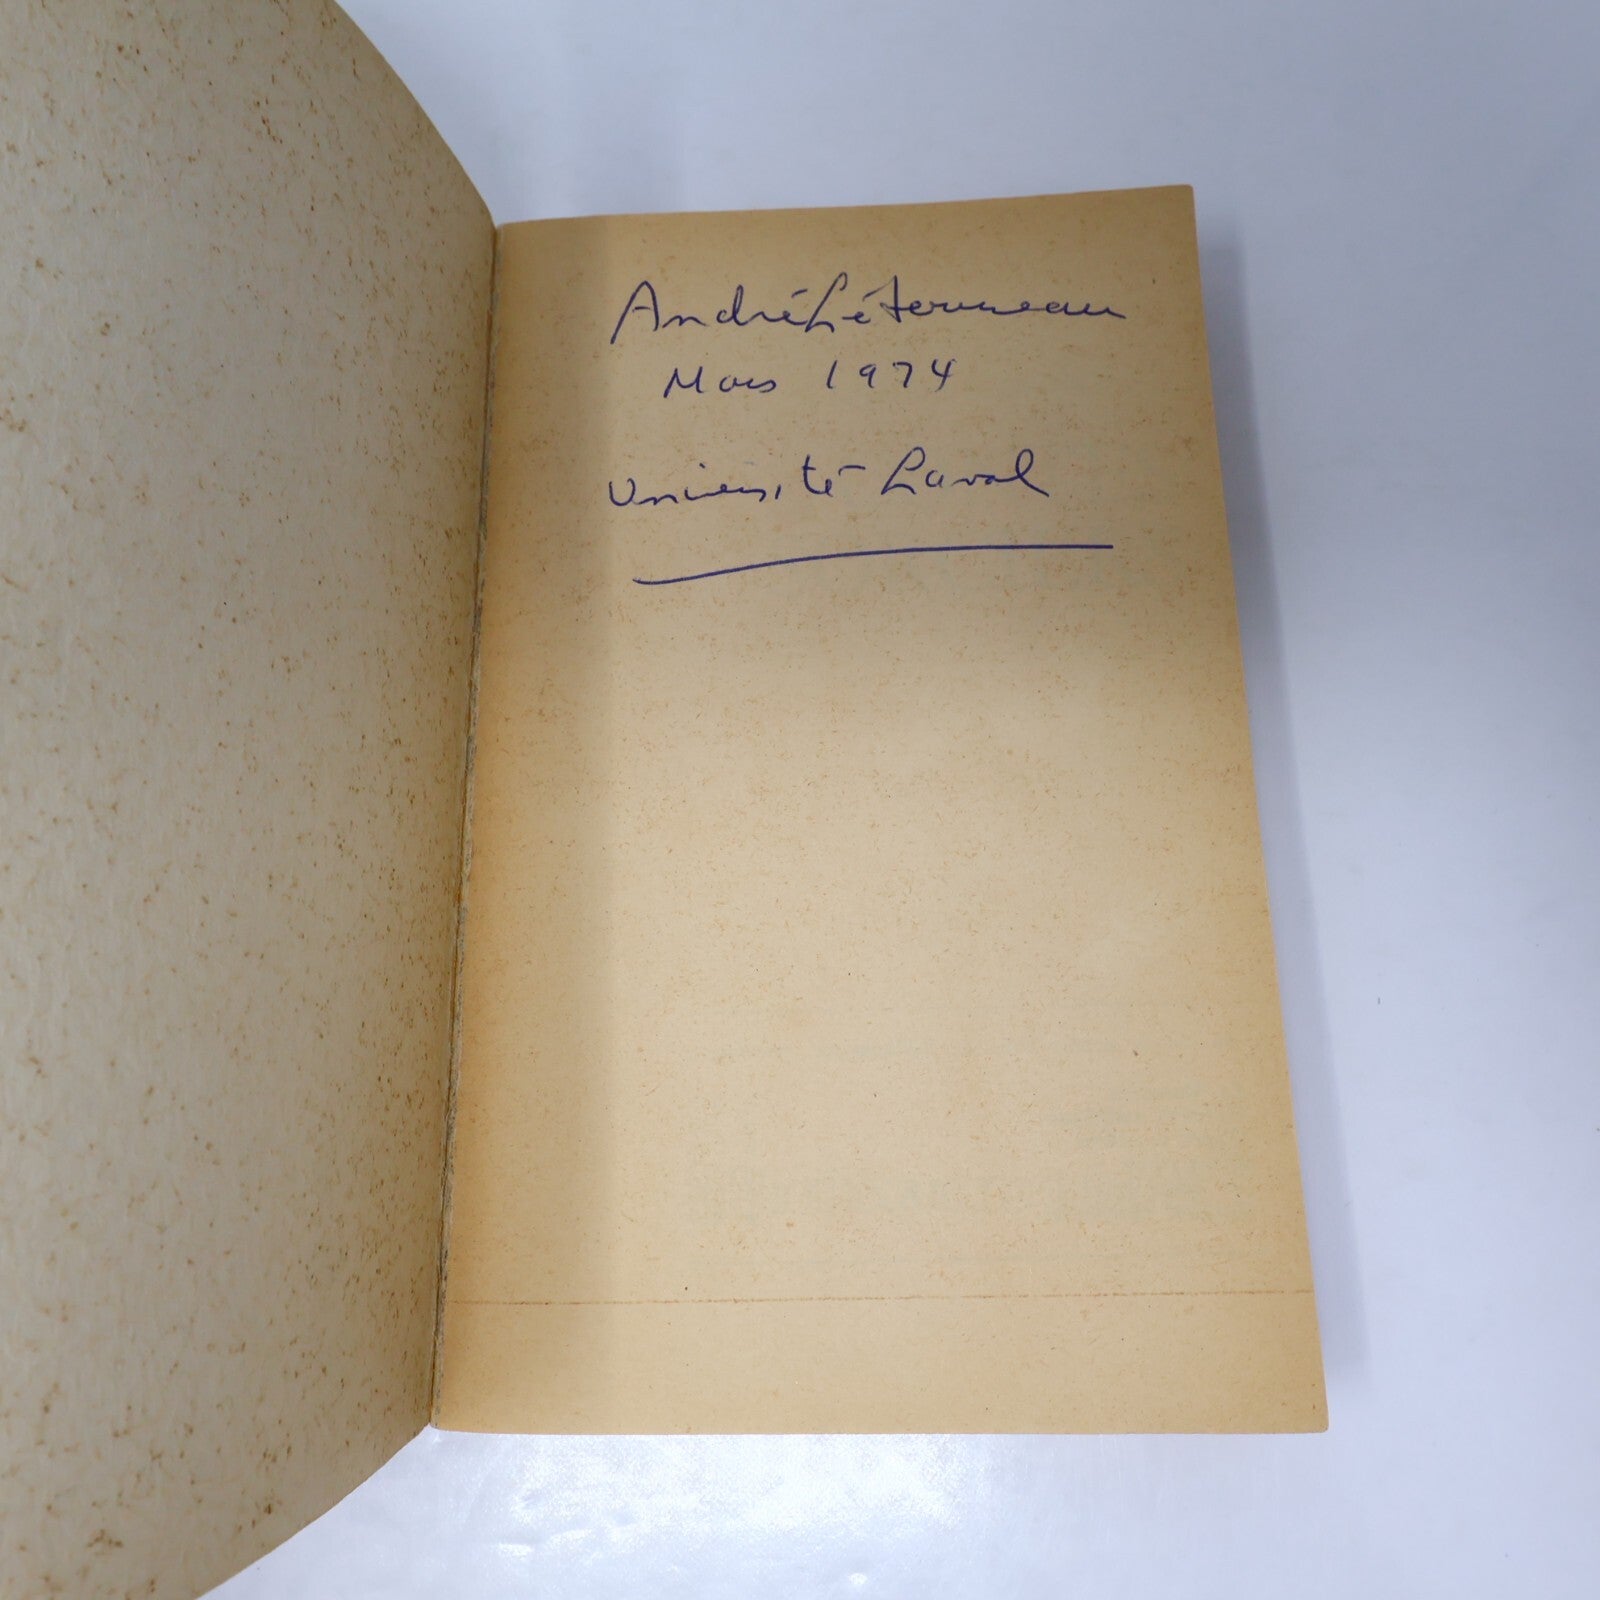 André Létourneau
Mars 1974
Université Laval